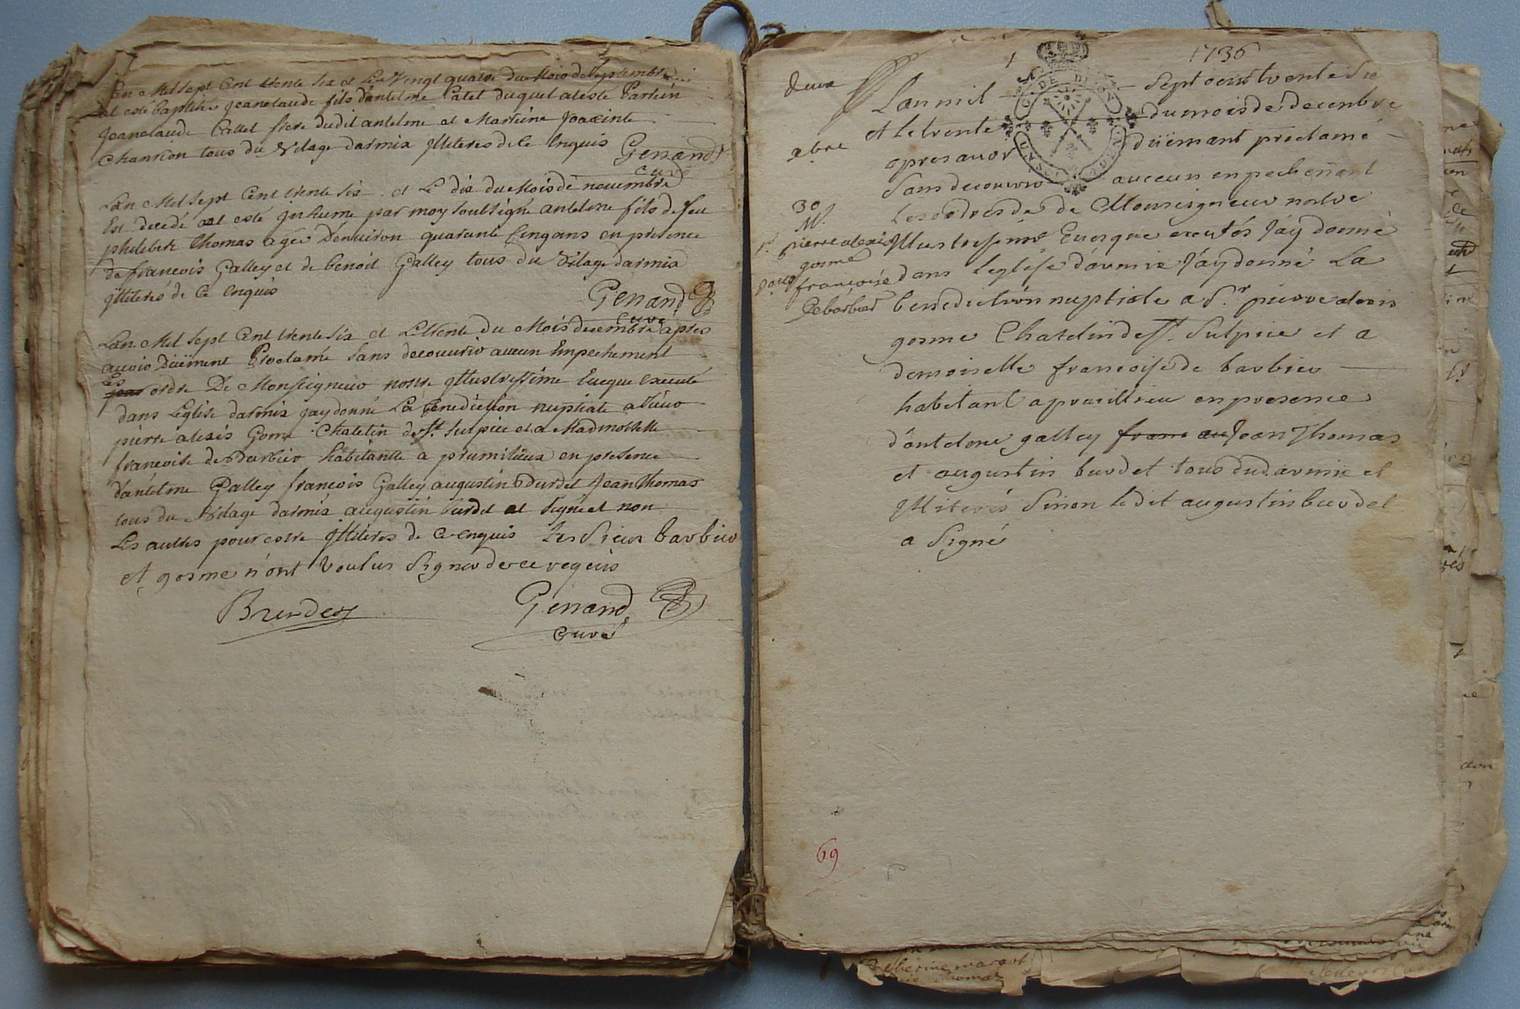 L'an Mil sept Cent trente six et Le Vingt quatre du Mois de septembre
at esté baptisé Jeanclaude fils dantelme Callet duquel a esté Parrein
Jeanclaude Callet frere dudit antelme et Marreine Joaxinte
Chanrion tous du Vilage darmix jlliteres de Ce Enquis Genand
Curé
Lan Mil sept Cent trente six et Le dix du Mois de nouembre
Est decedé at esté Jnhumé par moy soubsigné antelme fils de feu
philibert Thomas agé Denuiron quarante Cinq ans en presence
de francois Galley et de benoit Galley tous du Vilage darmix
jlliterés de Ce Enquis Genand
Curé
Lan Mil sept Cent trente six et Le trente du Mois decembre apres
auoir düement Proclamé sans decouurir aucun Empechement
les ordre De Monseigneur nostre jllustrissime Eueque Executé
dans Leglise darmix jay donné La Benediction nuptiale a sieur
pierre alexis Gome Chatelin de st. sulpice et a Madmoselle
francoise de Barbier habitante a prumilieux en presence
dantelme Galley francois Galley augustin Burdet Jean Thomas
tous du Vilage darmix augustin burdet at signé et non
Les autres pour estre jlliteres de Ce enquis Les sieur barbier
et gosme n'ont Voulus signer de ce requis
Burdet Genand
Curé
1 1736
deux
Lan mil sept cent trente six
et le trente du mois de decembre
xbre
apres auoir düement proclamé
sans decouurir auccun enpechement
30
Les ordres de de Monseigneur nostre
M.
pierre alexis jllustrissme Euesque executés Jay donné
gosme
francoise dans Leglise d'armix Jay donné La
De barbier benediction nuptiale a Sr. pierre alexis
gosme Chatelin de st. sulpice et a
demoiselle francoise de barbier
habitant a prumilieu en presence
d'antelme galley Jean Thomas
et augustin burdet tous dud. armix et
jlliterés sinon ledit augustin burdet
a signé
69